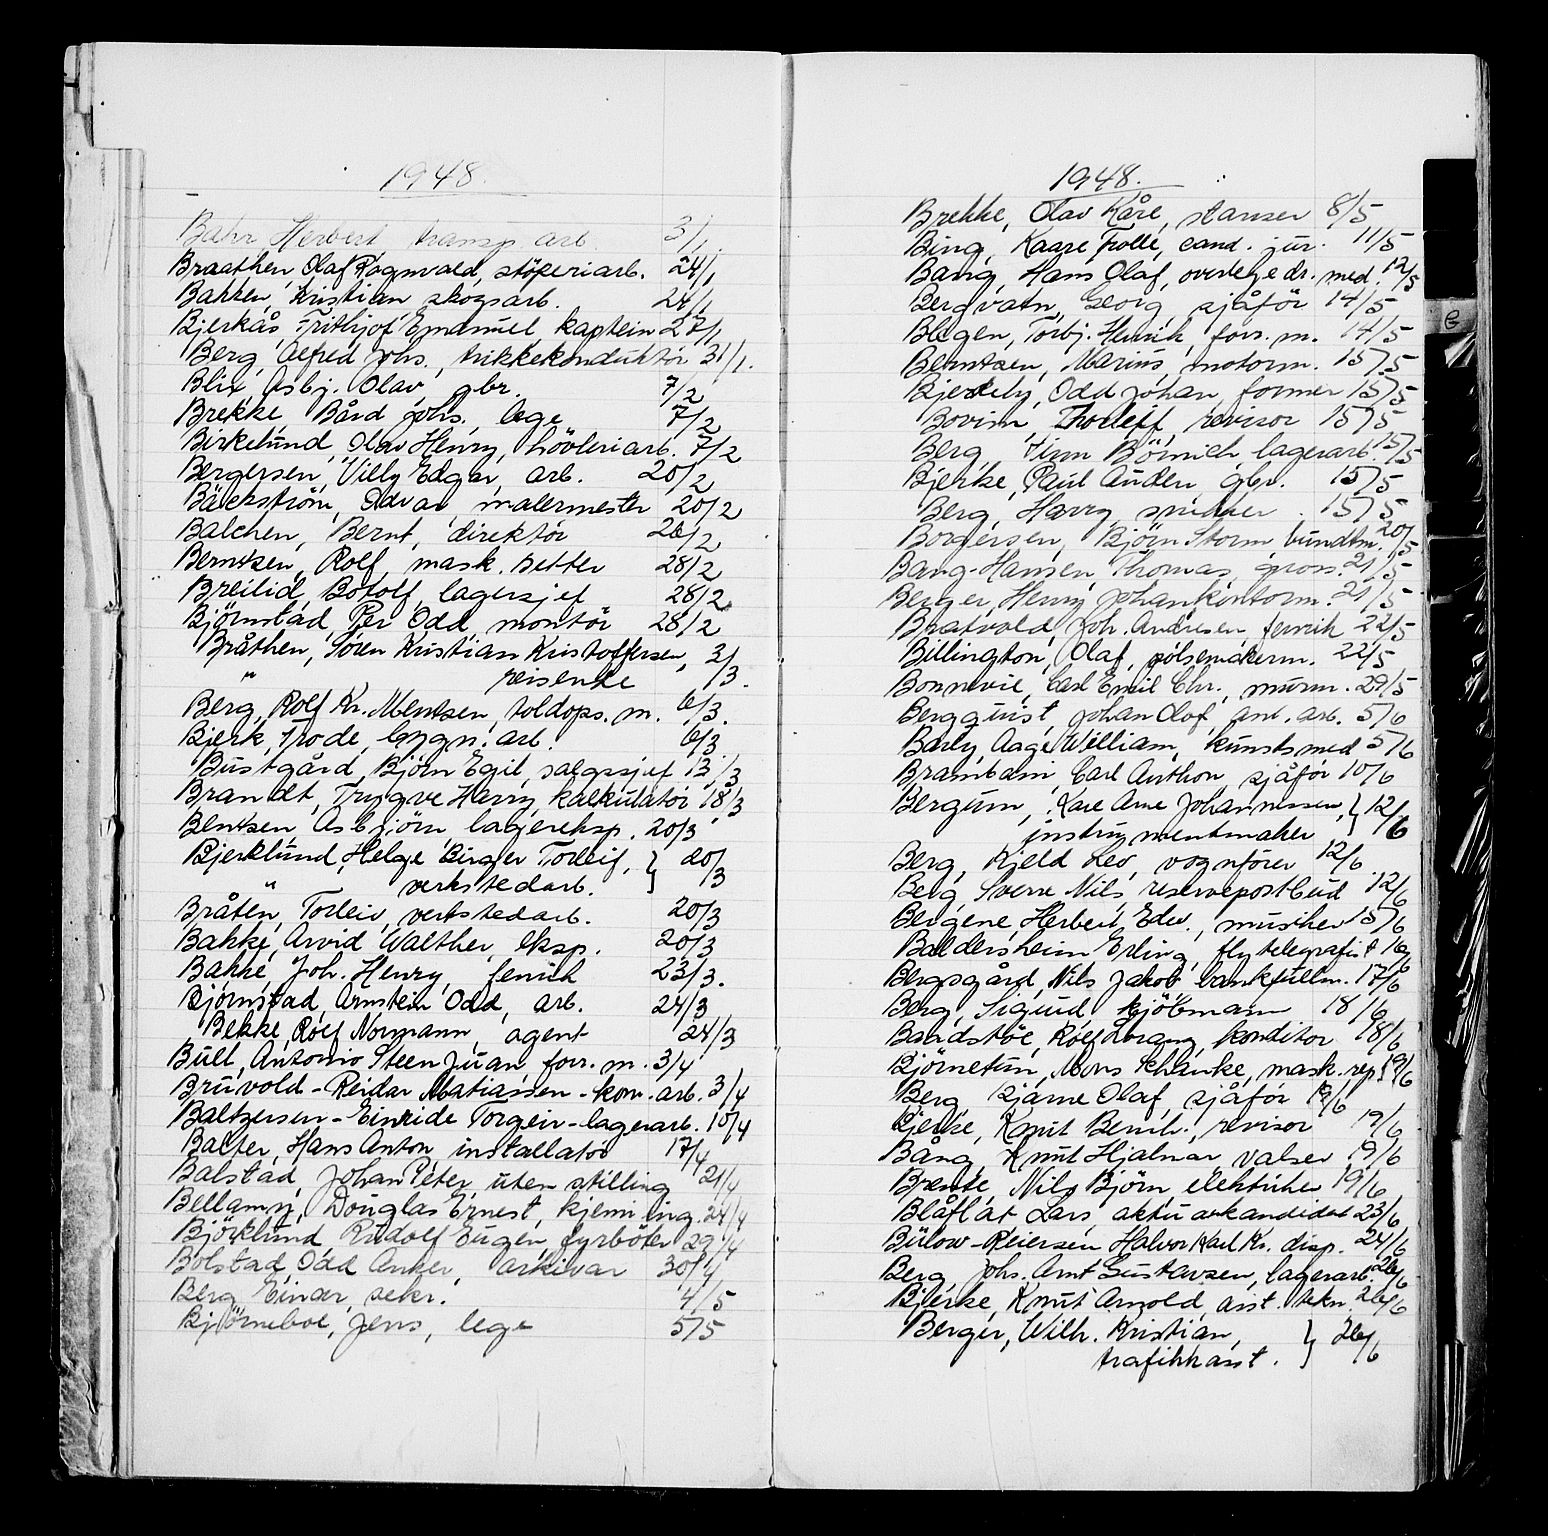 1948.
Bahr Herbert transp. arb. 3/1.
Braathen, Olaf Ragnvald, støperiarb. 24/1
Bakken, Kristian skogsarb. 24/1
Bjerkås, Frithjof Emanuel kaptein 27/1
Berg, Alfred Johs., trikkekonduktør 31/1.
Blix, Asbj. Olav, gbr. 7/2
Brekke, Bård Johs., lege 7/2
Birkelund, Olav Henry, høvleriarb. 7/2
Bergersen, Villy Edgar, arb. 20/2
Bäckström, Odvar, malermester 20/2
Balchen, Bernt, direktør 26/2
Berntsen, Rolf mask. setter 28/2
Breilid, Botolf, lagersjef 28/2
Bjørnstad, Per Odd montør 28/2
Bråthen, Søren Kristian Kristoffersen, 3/3
" reisende
Berg, Rolf Kr. Mentsen, toldops. m. 6/3.
Bjerk, Frode, bygn. arb. 6/3
Bustgård, Bjørn Egil, salgssjef 13/3
Brandt, Trygve Harry, kalkulatør 18/3
Bentsen, Asbjørn, lagereksp. 20/3
Bjerklund, Helge Birger Torleif, } 20/3
" verkstedarb.
Bråten, Torleiv, verkstedarb. 20/3
Bakke, Arvid Walther, eksp. 20/3
Bakke, Joh. Henry, fenrik 23/3.
Bjørnstad, Arnstein Odd, arb. 24/3
Bekke, Rolf Normann, agent 24/3
Bull, Antonio Steen Juan forr. m. 3/4
Bruvold - Reidar Matiassen - kom. arb. 3/4
Baltzersen - Einride Torgeir - lagerarb. 10/4
Balter, Hans Anton, installatør 17/4
Balstad, Johan Peter, uten stilling 21/4
Bellamy, Douglas Ernest, kjemi ing. 24/4
Bjørklund Rudolf Eugen, fyrbøter 29/4
Bolstad, Odd Anker, arkivar 30/4
Berg Einar, sekr. 4/5
Bjørneboe, Jens, lege 5/5
1948.
Brekke, Olav Kåre, stanser 8/5
Bing, Kaare Trolle, cand. jur. 11/5
Bang, Hans Olaf, overlege dr. med. 12/5
Bergvatn, Georg, sjåfør 14/5
Bøgen, Torbj. Henrik, forr. m. 14/5
Berntsen, Marius, motorm. 15/5
Odd Johan, former 15/5
Bovim, Thorleif revisor 15/5
Berg, Finn lagerarb. 15/5
Bjerke, Paul Auden gbr. 15/5
Berg, Harry, snekker. 15/5
Borgersen, Bjørn Storm, bundtm. 20/5
Bang-Hansen, Thomas, gross. 21/5
Berger, Henry Johan, kontorm. 21/5
Bratvold, Joh. Andresen, fenrik 22/5
Billington, Olaf, pølsemakerm. 22/5
Bonnevie, Carl Emil Chr., murm. 29/5
Bergquist, Johan Olof, anl. arb. 5/6
Barly, Aage William, kunstsmed 5/6
Brambani, Carl Anthon, sjåfør 10/6
Bergum, Kåre Arne Johannessen, } 12/6
instrumentmaker
Berg, Kjeld Leo, vognfører 12/6
Berg, Sverre Nils, reservepostbud 12/6
Bergene, Herbert Edv., musiker 15/6
Baldersheim Erling, flytelegrafist 16/6
Bergsgård, Nils Jakob bankfullm. 17/6
Berg, Sigurd, kjøbmann 18/6
Bardstøe, Rolf konditor 18/6
Bjørnetun, Mons Schanke, mask. rep. 19/6
Berg, Bjarne Olaf, sjåfør 19/6
Bjerke, Knut Bernh., revisor 19/6
Bång, Knut Hjalmar, valser 19/6
Brente, Nils Bjørn, elektriker 19/6
Blåflat Lars, aktuarkandidat 23/6
Bülow-Reiersen Halvor Karl Kr. disp. 24/6
Berg, Johs. Arnt Gustavsen, lagerarb. 26/6
Bjerke, Knut Arnold, asst. tekn. 26/6
Berger, Wilh. Kristian, } 26/6
trafikkasst.
B